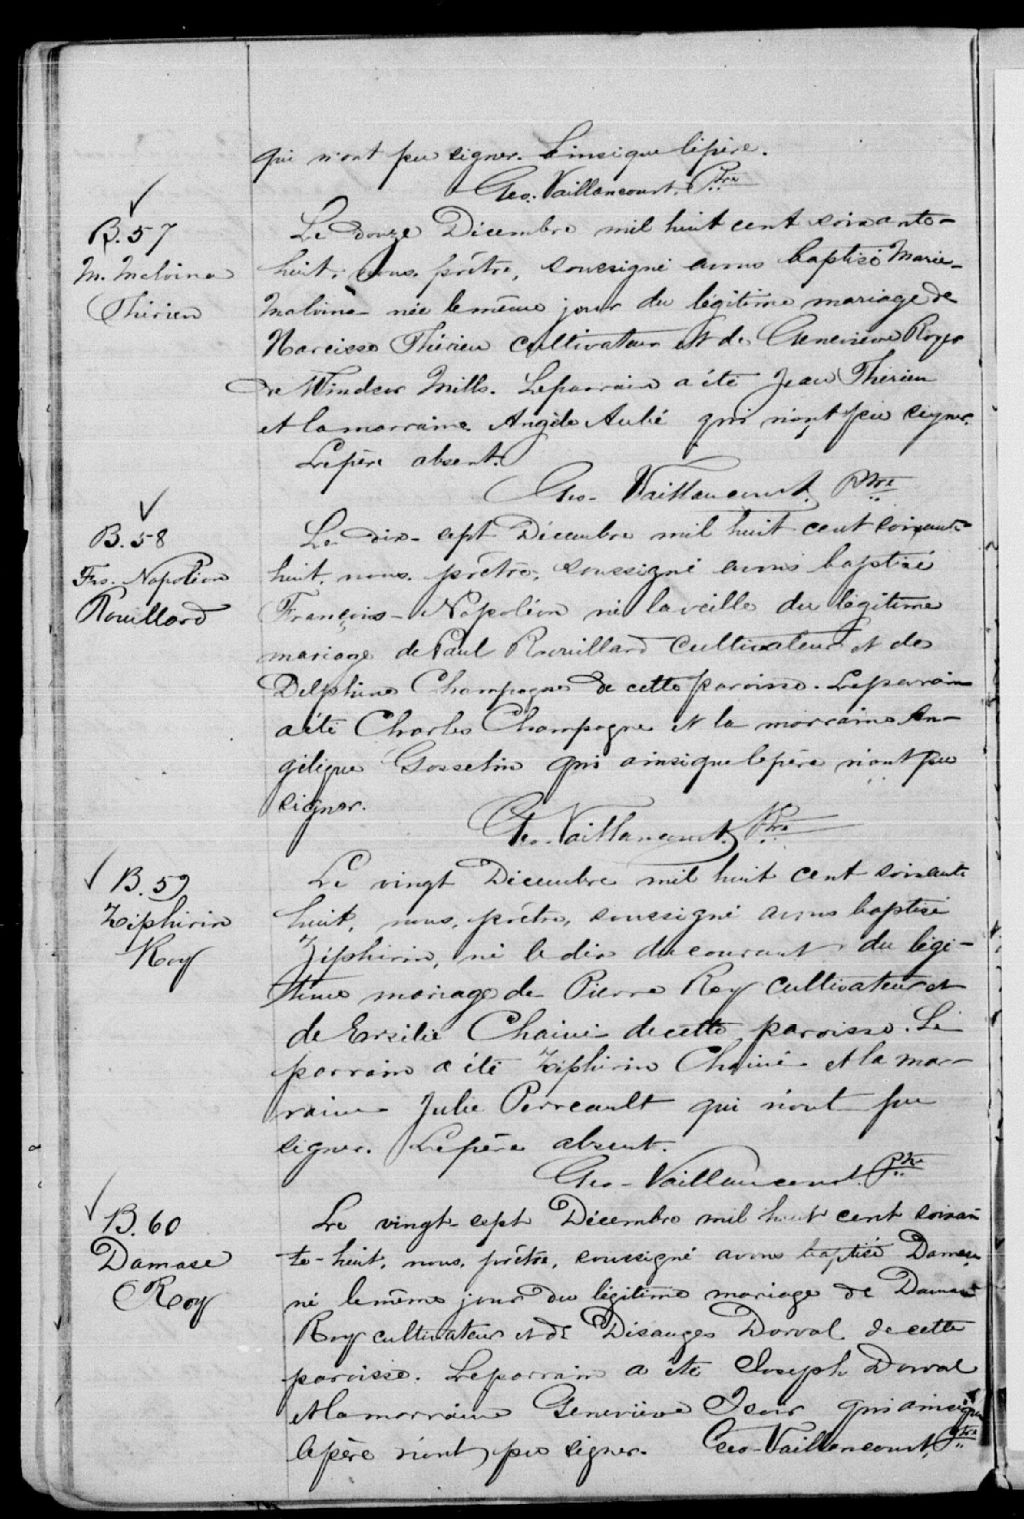 qui n'ont pu signer. Ainsi que le père.
Geo. Vaillancourt. Ptre
B. 57
M. Malvina
Thérien
Le douze Décembre mil huit cent soixante-
huit, nous, prêtre, soussigné avons baptisé Marie-
Malvina née le même jour du légitime mariage de
Narcisse Thérien cultivateur et de Geneviève Royer
de Windsor Mills. Le parrain a été Jean Thérien
et la marraine Angèle Aubé qui n'ont pu signer.
Le père absent.
Geo. Vaillancourt. Ptre
B. 58
Frs. Napoléon
Rouillard
Le dix-sept Décembre mil huit cent soixante
huit, nous, prêtre, soussigné avons baptisé
François-Napoléon né la veille du légitime
mariage de Paul Rouillard cultivateur et de
Delphine Champagne de cette paroisse. Le parrain
a été Charles Champagne et la marraine An-
gélique Gosselin qui ainsi que le père n'ont pu
signer.
Geo. Vaillancourt. Ptre
B. 59
Ziphirin
Roy
Le vingt Décembre mil huit cent soixante
huit, nous, prêtre, soussigné avons baptisé
Ziphirin, né le dix du courant du légi-
time mariage de Pierre Roy cultivateur et
de Ersilie Chainé de cette paroisse. Le
parrain a été Ziphirin Chainé et la mar-
raine Julie Perreault qui n'ont pu
signer. Le père absent.
Geo. Vaillancourt. Ptre
B. 60
Damase
Roy
Le vingt-sept Décembre mil huit cent soixan
te-huit, nous, prêtre, soussigné avons baptisé Damase
né le même jour du légitime mariage de Damase
Roy cultivateur et de Disanges Dorval de cette
paroisse. Le parrain a été Joseph Dorval
et la marraine Geneviève qui ainsi que
le père n'ont pu signer. Geo. Vaillancourt, Ptre